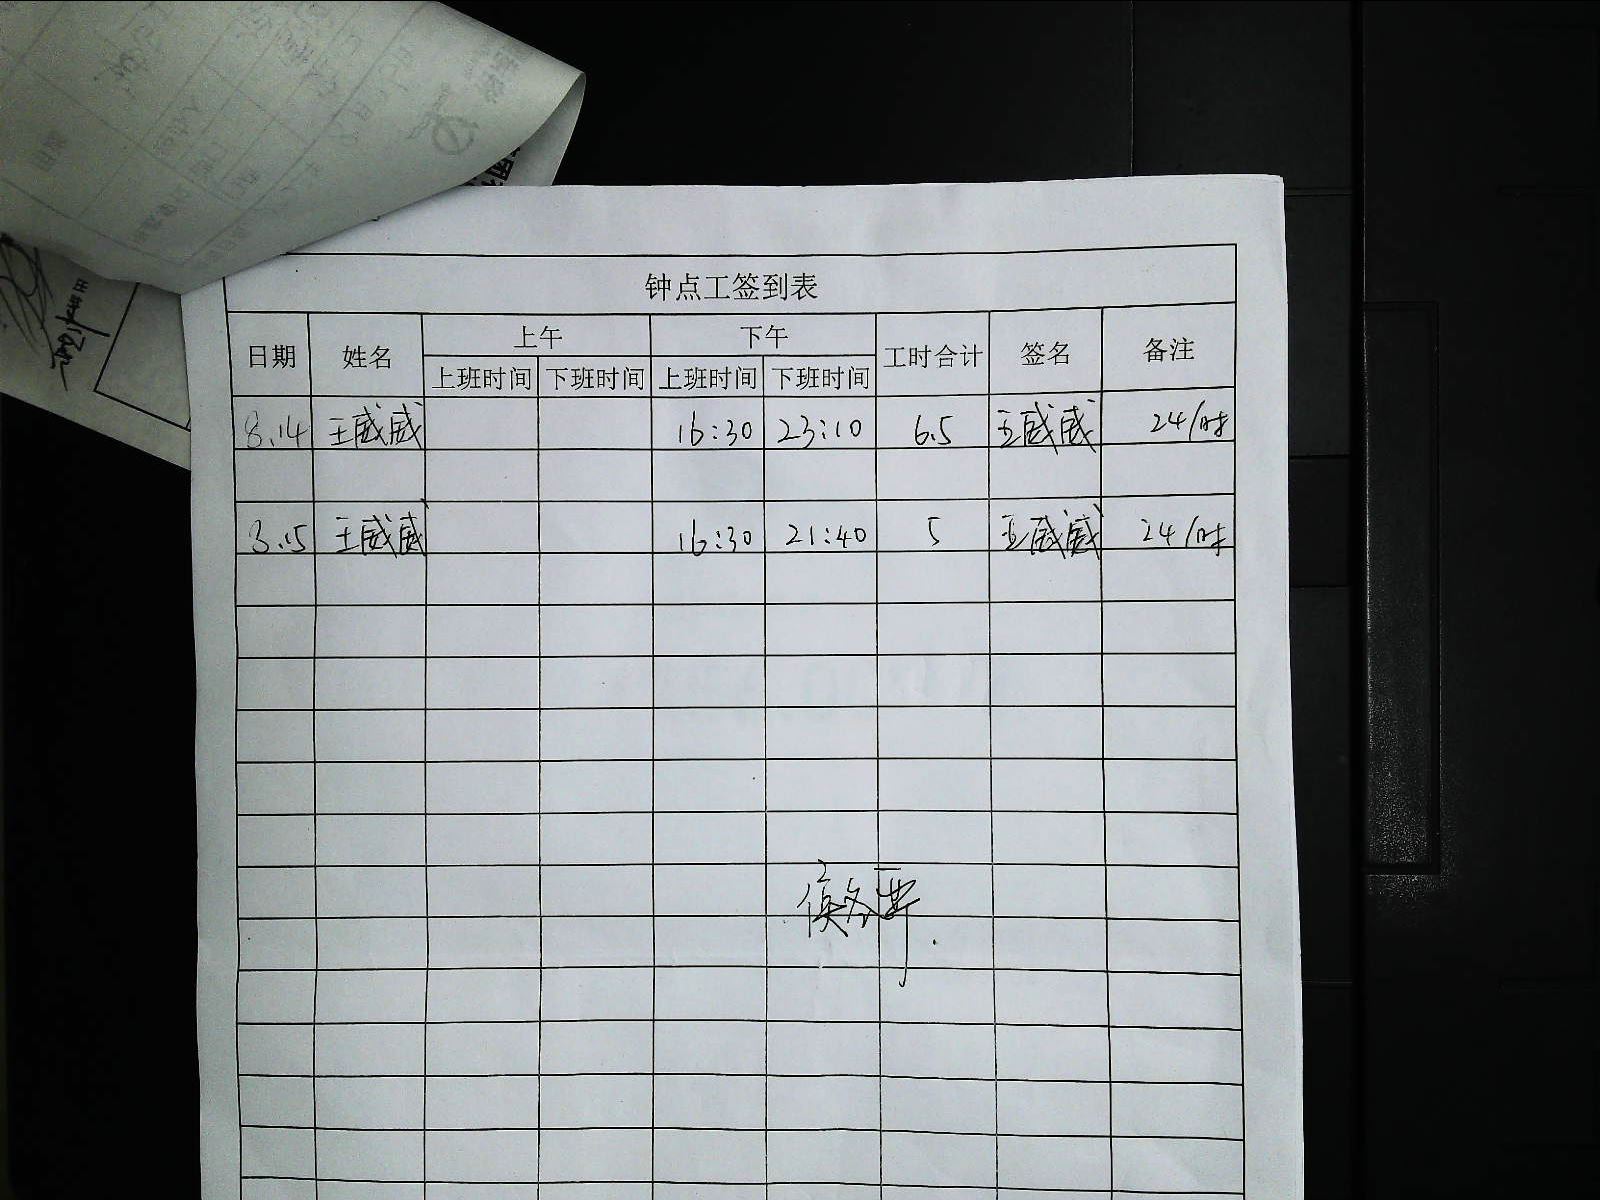 钟点工签到表
日期 姓名 上午 下午 工时合计 签名 备注
上班时间 下班时间 上班时间 下班时间
8.14 王威威 16:30 23:10 6.5 王威威 24/时
8.15 王威威 16:30 21:40 5 王威威 24/时